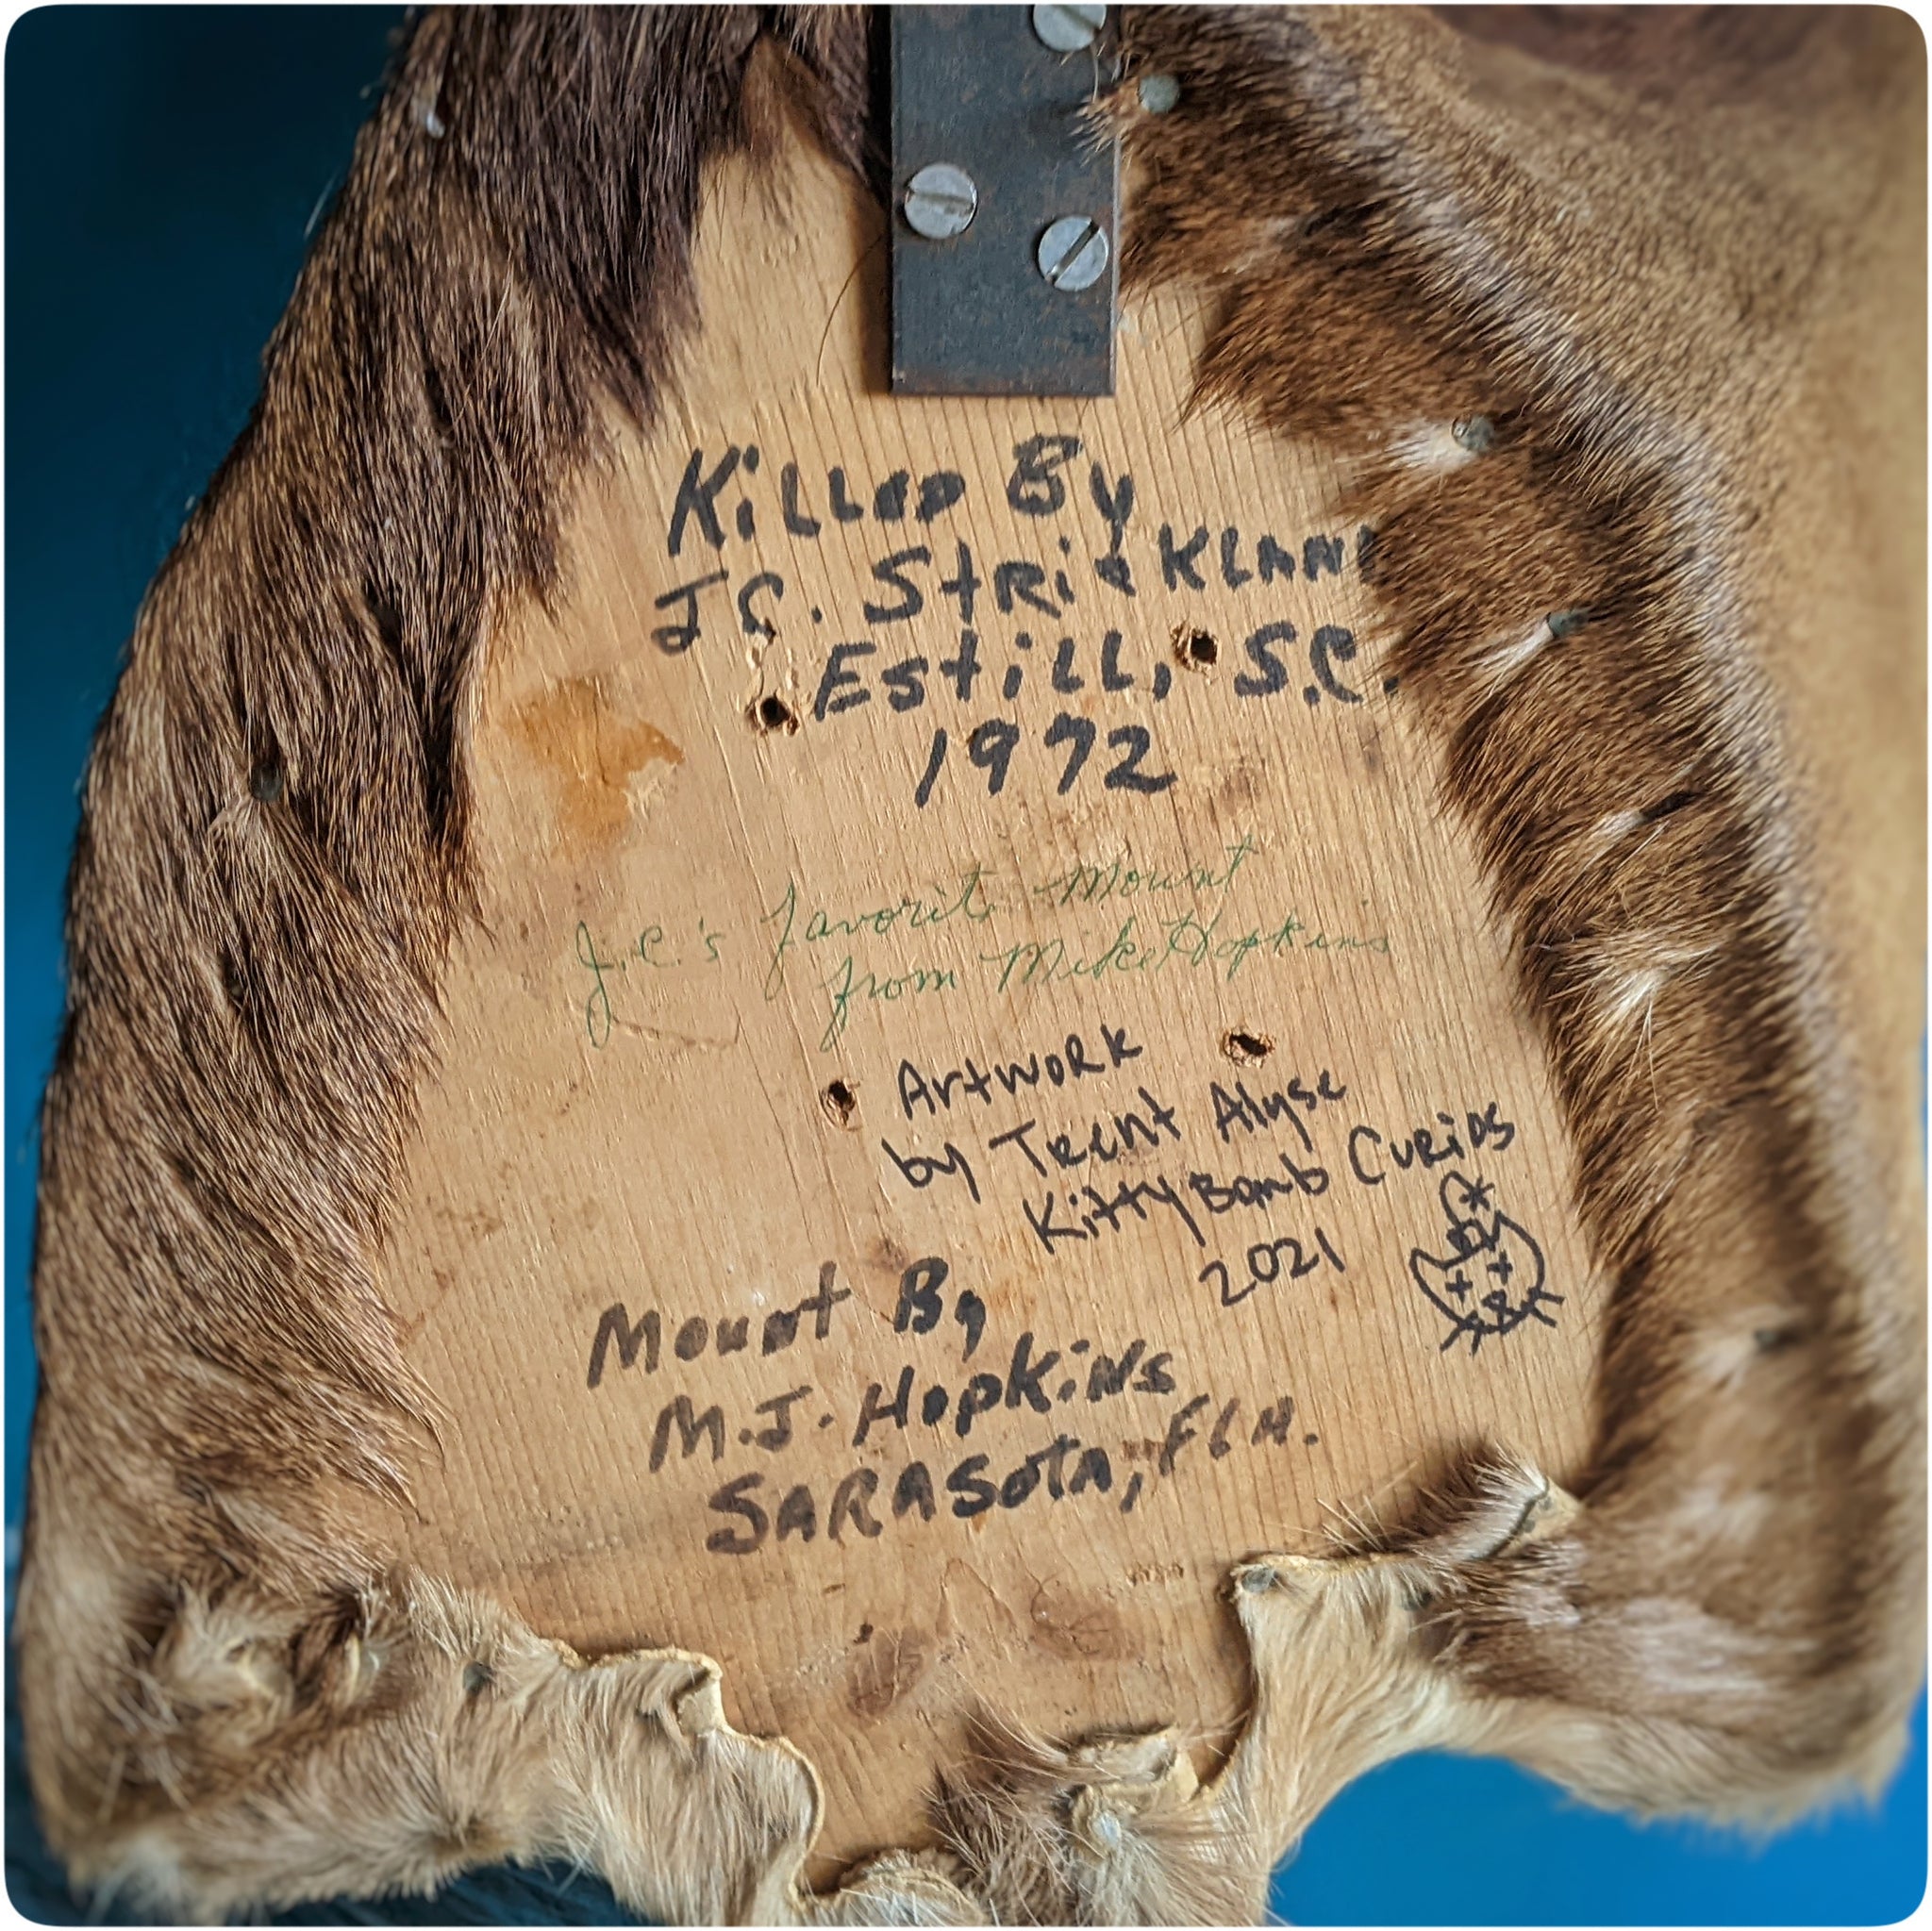 Killed By
J C. StRicKLAND
Estill, S.C.
1972
J.C.'s favorite Mount
from Mike Hopkins
Artwork
by Trent Alyse
KittyBomb Curios
2021
Mount By
M.J. HopKiNs
SARASotA, FLA.